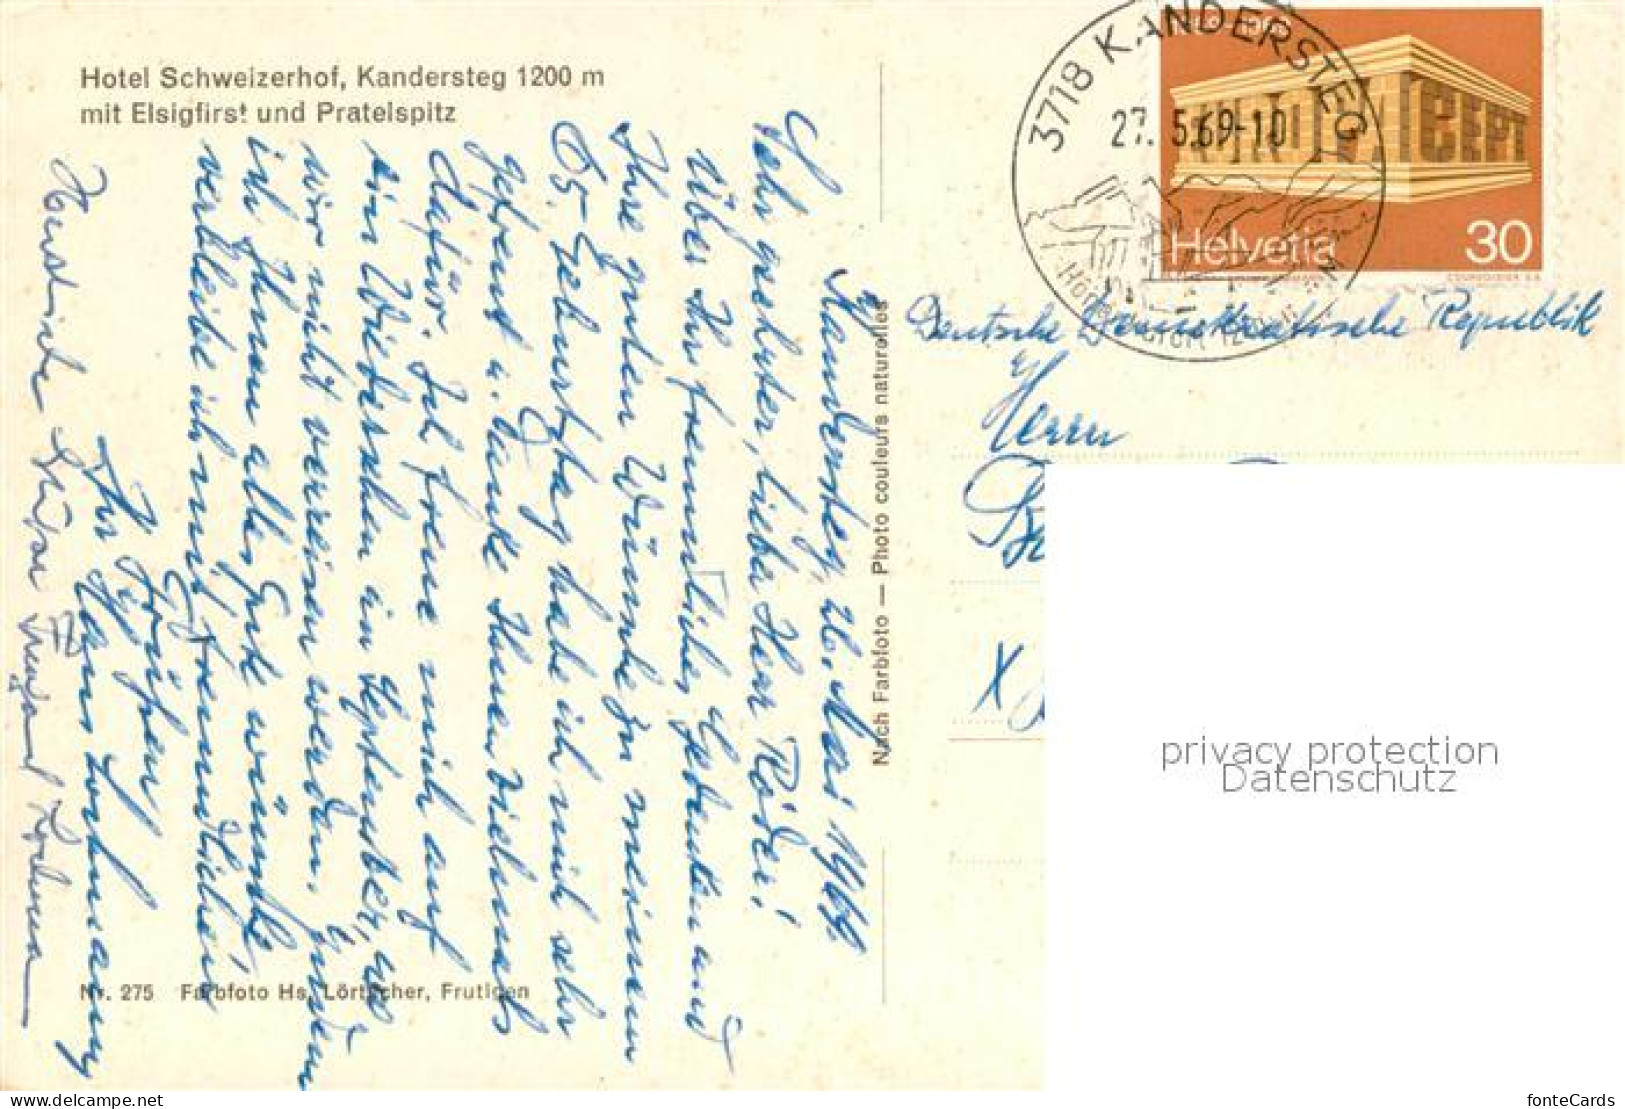 Hotel Schweizerhof, Kandersteg 1200 m
mit Elsigfirst und Pratelspitz
Kandersteg, 26. Mai 1969.
Sehr geehrter, lieber Herr Röder!
Über Ihr freundliches Gedenken und
Ihre guten Wünsche zu meinem
65. Geburtstag habe ich mich sehr
gefreut u. danke Ihnen vielmals
dafür. Ich freue mich auf
ein Wiedersehen im September, wo
wir nicht verreisen werden. Indem
ich Ihnen alles Gute wünsche,
verbleibe ich mit freundlichen
Grüßen
Ihr Hans Lohmann
Herzliche Grüße
Nr. 275 Farbfoto Hs. Lörtscher, Frutigen
Nach Farbfoto — Photo couleurs naturelles
3718 KANDERSTEG
27. 5.69-10
CEPT
Helvetia
30
COURVOISIER S.A.
Deutsche Demokratische Republik
Herrn
X
privacy protection
Datenschutz
www.delcampe.net
fonteCards